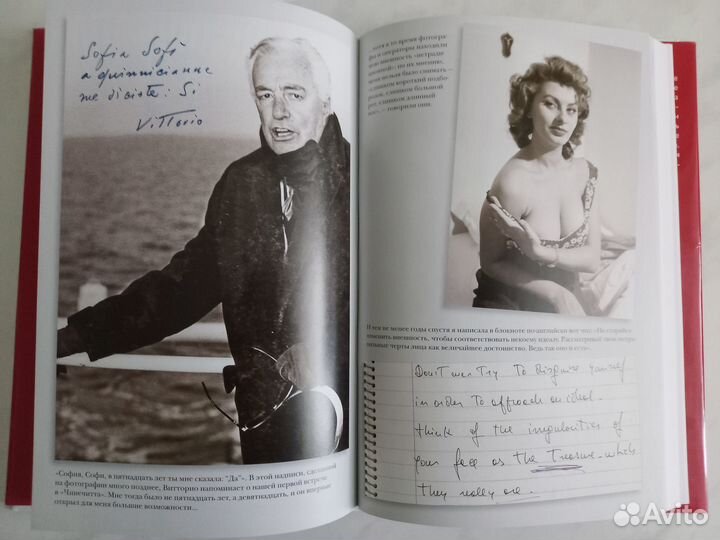 Sofia Sofì
a quinnicianne
me diciste: Si
Vittorio
«София, Софи, в пятнадцать лет ты мне сказала: "Да"». В этой надписи, сделанной
на фотографии много позднее, Витторио напоминает о нашей первой встрече
в «Чинечитта». Мне тогда было не пятнадцать лет, а девятнадцать, и он впервые
открыл для меня большие возможности...
хотя в то время фотогра-
фы и операторы находили
мою внешность «нетради-
ционной»; по их мнению,
меня нельзя было снимать –
«слишком короткий подбо-
родок, слишком большой
рот, слишком длинный
нос», – говорили они.
И тем не менее годы спустя я написала в блокноте по-английски вот что: «Не старайся
изменить внешность, чтобы соответствовать некоему идеалу. Рассматривай
черты лица как величайшее достоинство. Ведь так оно и есть».
Don't ever Try. To disguise yourself
in order To approach an ideal.
Think of the irregularities of
your face as the Treasure which
They really are.
Avito